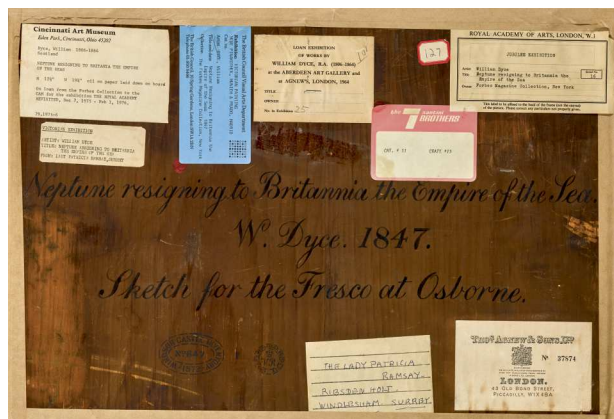 Cincinnati Art Museum
Eden Park, Cincinnati, Ohio 45202
Dyce, William 1806-1864
Scotland
NEPTUNE RESIGNING TO BRITANNIA THE EMPIRE
OF THE SEA
oil on paper laid down on board
On loan from the Forbes Collection to the
CAM for the exhibition THE ROYAL ACADEMY
REVISITED,
VICTORIAN EXHIBITION
ARTIST: WILLIAM DYCE
TITLE: NEPTUNE RESIGNING TO BRITANNIA
THE EMPIRE OF THE SEA
The British Council Visual Arts Department
LOAN EXHIBITION
OF WORKS BY
WILLIAM DYCE, R.A. (1806-1864)
at the ABERDEEN ART GALLERY and
at AGNEW'S, LONDON, 1964
TITLE:
OWNER:
No. in Exhibition 25
127
the 7 santini
BROTHERS
CAT. # 11 CRATE #23
ROYAL ACADEMY OF ARTS, LONDON, W.1
JUBILEE EXHIBITION
Artist William Dyce
Title Neptune resigning to Britannia the
Empire of the Sea
Owner Forbes Magazine Collection, New York
Neptune resigning to Britannia the Empire of the Sea.
W. Dyce. 1847.
Sketch for the Fresco at Osborne.
THE LADY PATRICIA
RAMSAY.
RIBSDEN HOLT
WINDLESHAM SURREY
Thos. Agnew & Sons Ltd.
No 37874
LONDON.
43 OLD BOND STREET,
PICCADILLY, W1X4BA